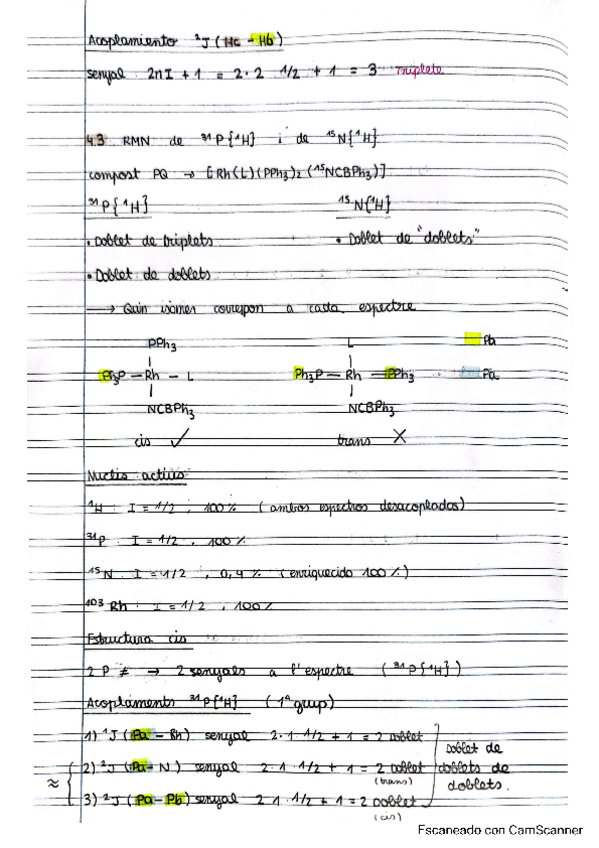 Acoplamiento ²J (Hc - Hb)
senyal 2nI + 1 = 2 · 2 1/2 + 1 = 3 Triplete
4.3 RMN de ³¹P{¹H} i de ¹⁵N{¹H}
compost PQ → [Rh(L)(PPh₃)₂(¹⁵NCBPh₃)]
³¹P{¹H} ¹⁵N{¹H}
• Doblet de triplets • Doblet de "doblets"
• Doblet de doblets
→ Quin isomer correspon a cada espectre
PPh₃ L Pb
Ph₃P — Rh — L Ph₃P — Rh — PPh₃ Pa
NCBPh₃ NCBPh₃
cis ✓ trans X
Nuclis actius
¹H : I = 1/2 ; 100 % (ambos espectros desacoplados)
³¹P : I = 1/2 , 100 %
¹⁵N : I = 1/2 , 0,4 % (enriquecido 100 %)
¹⁰³Rh : I = 1/2 , 100 %
Estructura cis
2 P ≠ → 2 senyals a l'espectre (³¹P{¹H})
Acoplaments ³¹P{¹H} (1ª grup)
1) ¹J (Pa - Rh) senyal 2 · 1 · 1/2 + 1 = 2 doblet
2) ²J (Pa - N) senyal 2 · 1 · 1/2 + 1 = 2 doblet (trans)
≈
3) ²J (Pa - Pb) senyal 2 · 1 · 1/2 + 1 = 2 doblet (cis)
Doblet de
doblets de
doblets.
Escaneado con CamScanner